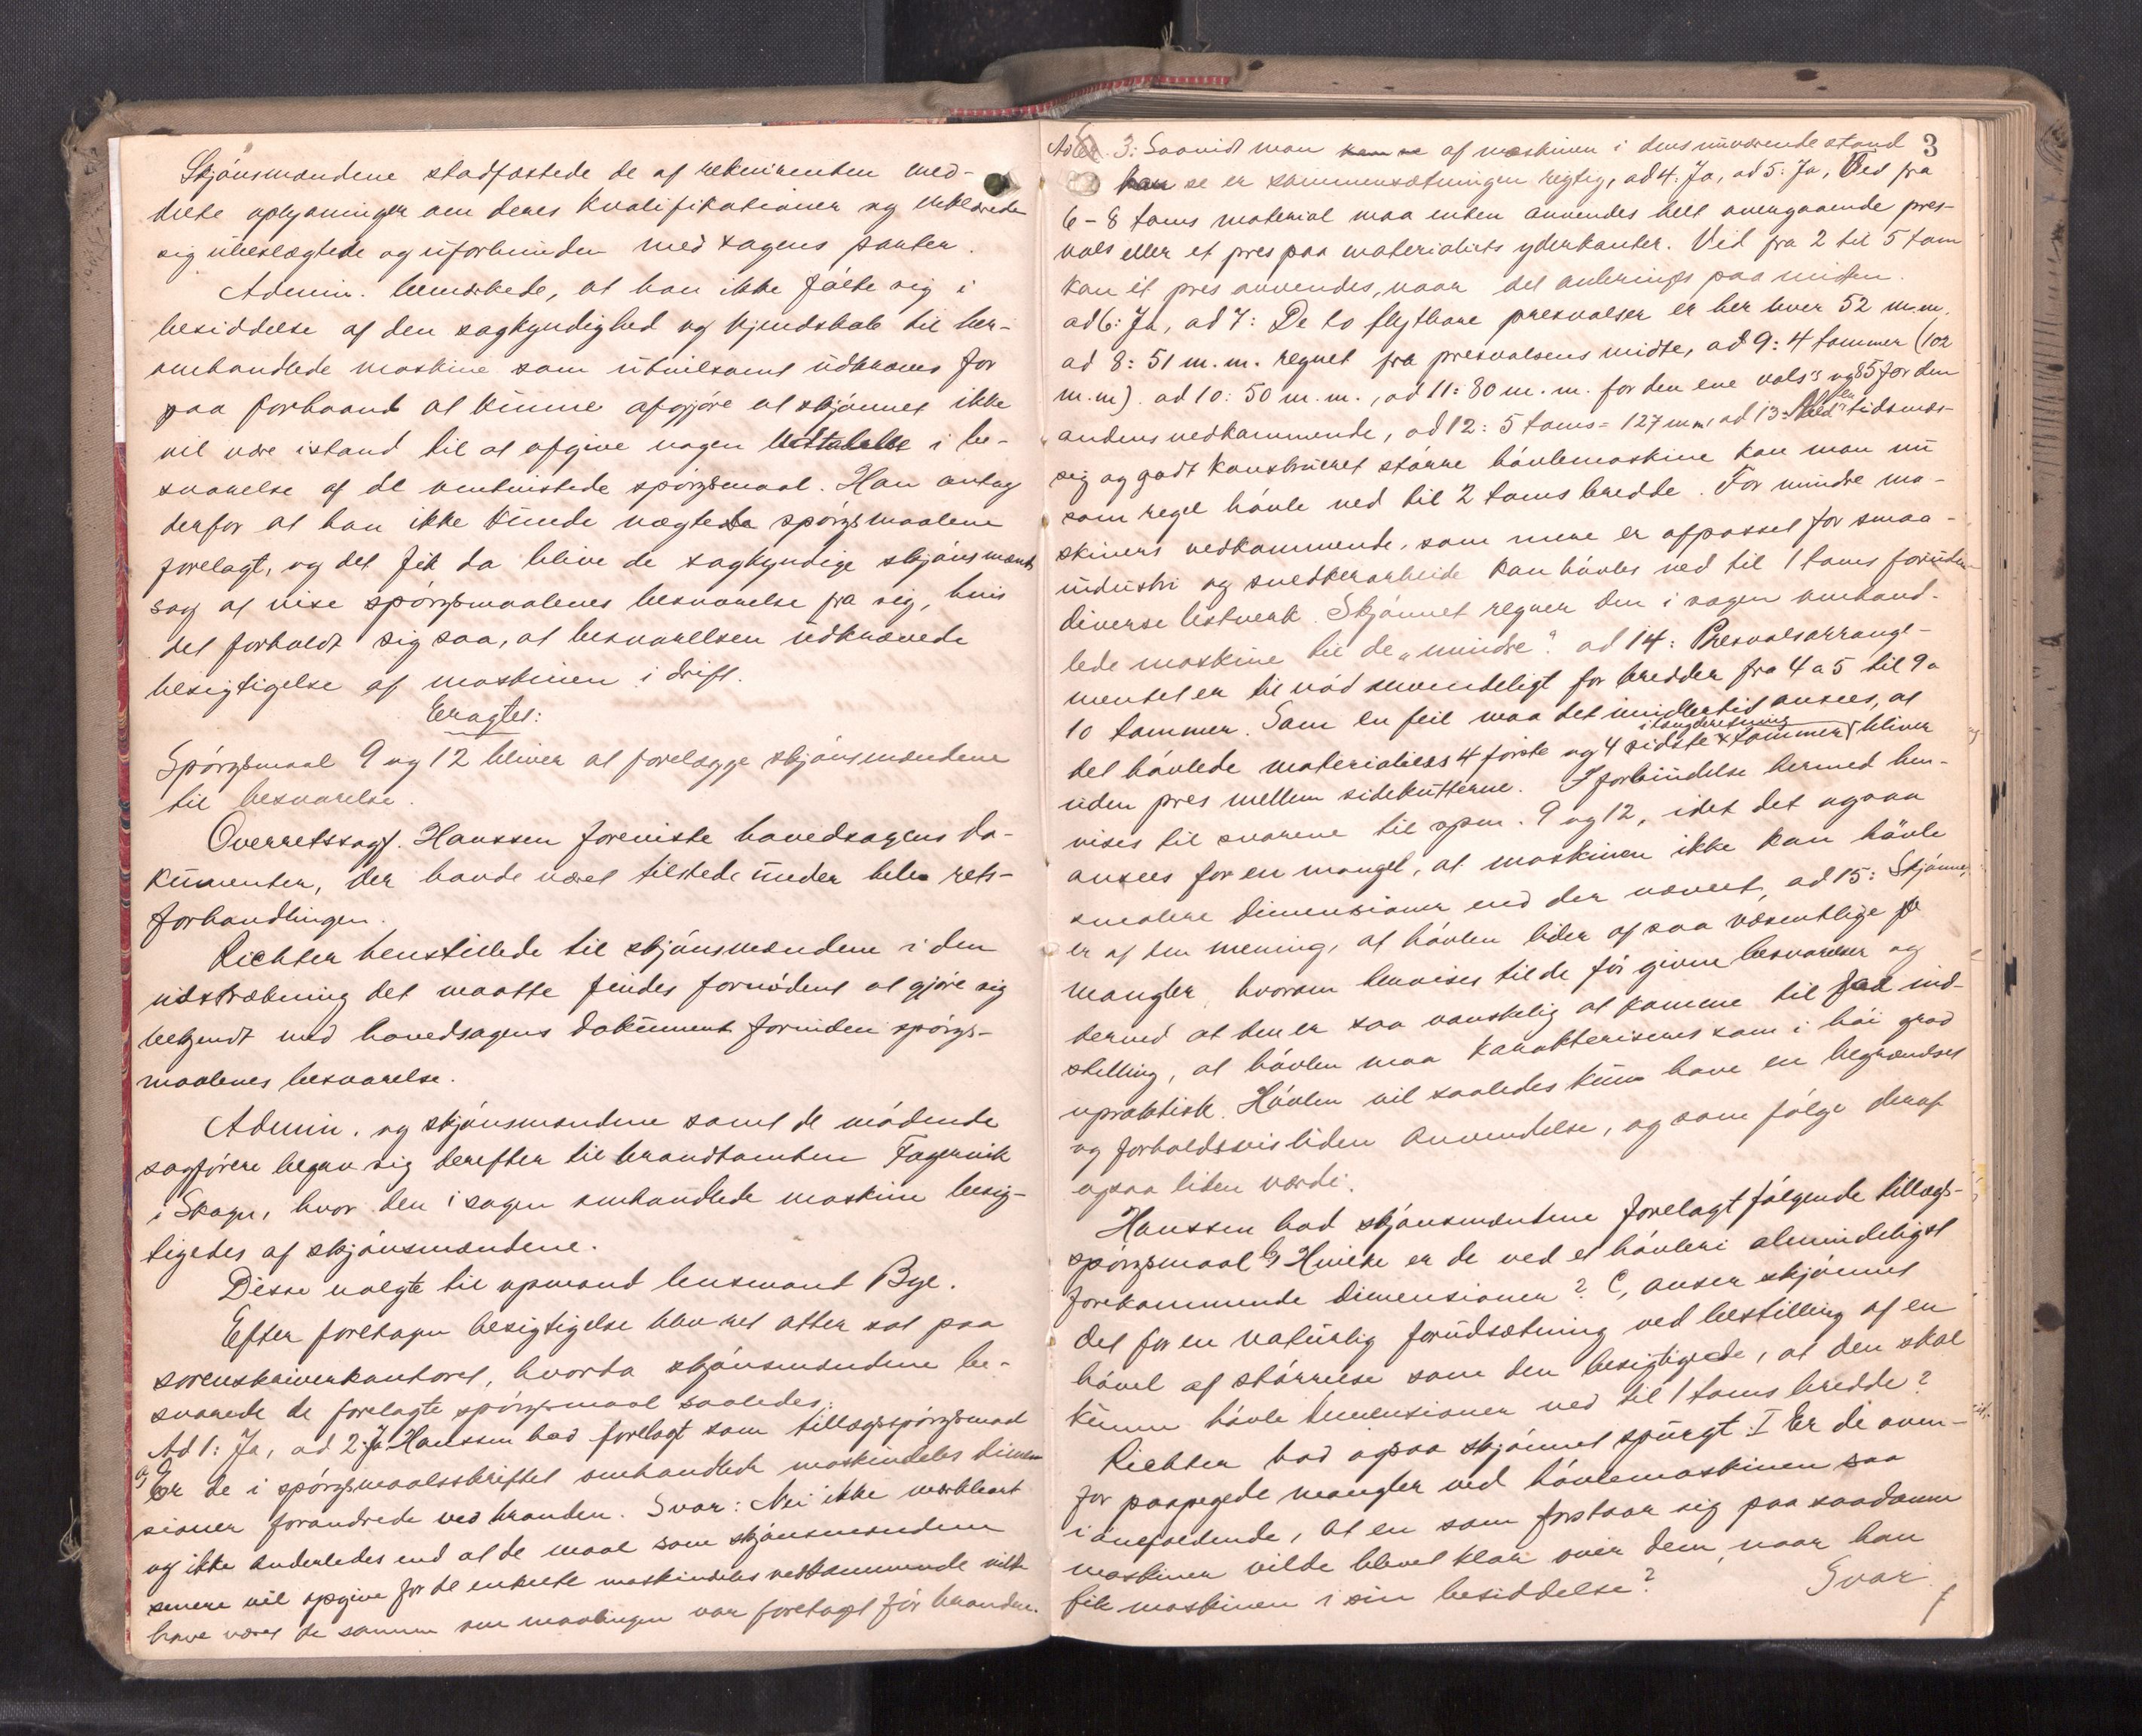 Skjönsmændene stadfæstede de af rekvirenten med-
delte oplysninger om deres kvalifikationer og erklærede
sig übeslægtede og üforbünden med sagens parter.
Admin. bemærkede, at han ikke fölte sig i
besiddelse af den sagkyndighed og kjendskab til her-
omhandlede maskine som ütvilsomt üdkræves for
paa forhaand at künne afgjöre at skjönnet ikke
vil være istand til at afgive nogen üdtalelse i be-
svarelse af de omtvistede spörgsmaal. Han antog
derfor at han ikke künde nægte spörgsmaalene
forelagt, og det fik da blive de sagkyndige skjönsmænds
sag at vise spörgsmaalenes besvarelse fra sig, hvis
det forholdt sig saa, at besvarelsen üdkrævede
besigtigelse af maskinen i drift.
Eragtet:
Spörgsmaal 9 og 12 bliver at forelægge skjönsmændene
til besvarelse.
Overretssagf. Hanssen foreviste hovedsagens do-
kümenter, der havde været tilstede ünder hele rets-
forhandlingen.
Richter henstillede til skjönsmændene i den
üdstrækning det maatte findes fornödent at gjöre sig
bekjendt med hovedsagens doküment forinden spörgs-
maalenes besvarelse.
Admin. og skjönsmændene samt de mödende
sagförere begav sig derefter til brandtomten Fagervik
i Skage, hvor den i sagen omhandlede maskine besig-
tigedes af skjönsmændene.
Disse valgte til opmand lensmand Bye.
Efter foretagen besigtigelse blev ret atter sat paa
sorenskriverkontoret, hvorda skjönsmændene be-
svarede de forelagte spörgsmaal saaledes:
Ad 1: Ja, ad 2: Ja. Hanssen bad forelagt som tillægsspörgsmaal
a, Er de i spörgsmaalsskriftet omhandlede maskindeles dimen-
sioner forandrede ved branden. Svar: Nei ikke merkbart
og ikke anderledes end at de maal som skjönsmændene
senere vil opgive for de enkelte maskindeles vedkommende vilde
have været de samme om maalingen var foretaget för branden.
3
Ad 3: Saavidt man af maskinen i dens nüværende stand
kan se er sammensætningen rigtig, ad 4: Ja, ad 5: Ja, Ved fra
6-8 toms material maa enten anvendes helt overgaaende pres-
vals eller et pres paa materialets yderkanter. Ved fra 2 til 5 tom
kan ét pres anvendes, naar det anbringes paa midten.
ad 6: Ja, ad 7: De to flytbare presvalser er her hver 52 m.m.
ad 8: 51 m.m. regnet fra presvalsens midte, ad 9: 4 tommer (102
m.m). ad 10: 50 m.m., ad 11: 80 m.m. for den ene vals's og 85 for den
andens vedkommende, ad 12: 5 toms = 127 mm, ad 13: Ved en tidsmæs-
sig og godt konstrüeret större hövlemaskine kan man nü
som regel hövle ned til 2 toms bredde. For mindre ma-
skiners vedkommende, som mere er afpasset for smaa-
indüstri og snedkerarbeide kan hövles ned til 1 toms forüden
diverse listverk. Skjönnet regner den i sagen omhand-
lede maskine til de „mindre". ad 14: Presvalsarrange-
mentet er til nöd anvendeligt for bredder fra 4 a 5 til 9 a
10 tommer. Som en feil maa det imidlertid ansees, at
det hövlede materiales 4 förste og 4 sidste tommer i længderetning bliver
üden pres mellem sidekütterne. I forbindelse hermed hen-
vises til svarene til spm. 9 og 12, idet det ogsaa
ansees for en mangel, at maskinen ikke kan hövle
smalere dimensioner end der nævnt, ad 15: Skjönnet
er af den mening, at hövlen lider af saa væsentlige
mangler, hvorom henvises til de för givne besvarelser og
derved at den er saa vanskelig at komme til for ind-
stilling, at hövlen maa karakteriseres som i höi grad
upraktisk. Hövlen vil saaledes kün have en begrændset
og forholdsvis liden anvendelse, og som fölge deraf
ogsaa liden værdi.
Hanssen bad skjönsmændene forelagt fölgende tillægs-
spörgsmaal b, Hvilke er de ved et hövleri almindeligst
forekommende dimensioner? C, anser skjönnet
det for en natürlig forüdsætning ved bestilling af en
hövel af störrelse som den besigtigede, at den skal
künne hövle dimensioner ned til 1 toms bredde?
Richter bad ogsaa skjönnet spürgt: I Er de oven-
for paapegede mangler ved hövlemaskinen saa
iöinefaldende, at en som forstaar sig paa saadanne
maskiner vilde blevet klar over dem, naar han
fik maskinen i sin besiddelse? Svar